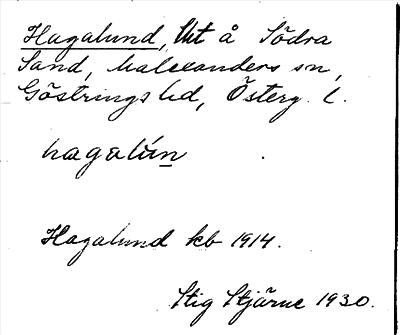 Hagalund, tht å Södra
Sand, Malexanders sn,
Göstrings hd, Österg. l.
hagalún
Hagalund kb 1914.
Stig Stjärne 1930.